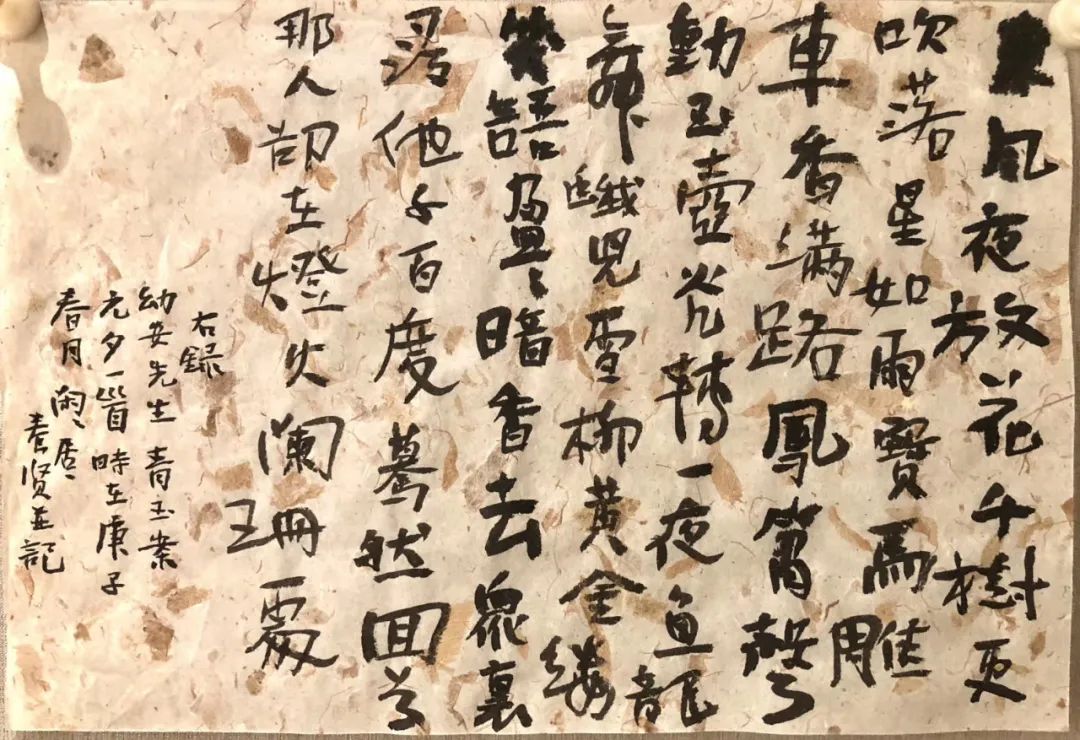 東風夜放花千樹更
吹落星如雨寶馬雕
車香滿路鳳簫聲
動玉壺光轉一夜鱼龍
舞蛾兒雪柳黄金縷
笑語盈々暗香去眾裏
尋他千百度驀然回首
那人卻在燈火闌珊處
右録
幼安先生青玉案
元夕一首時在庚子
春月閑居
贤並記